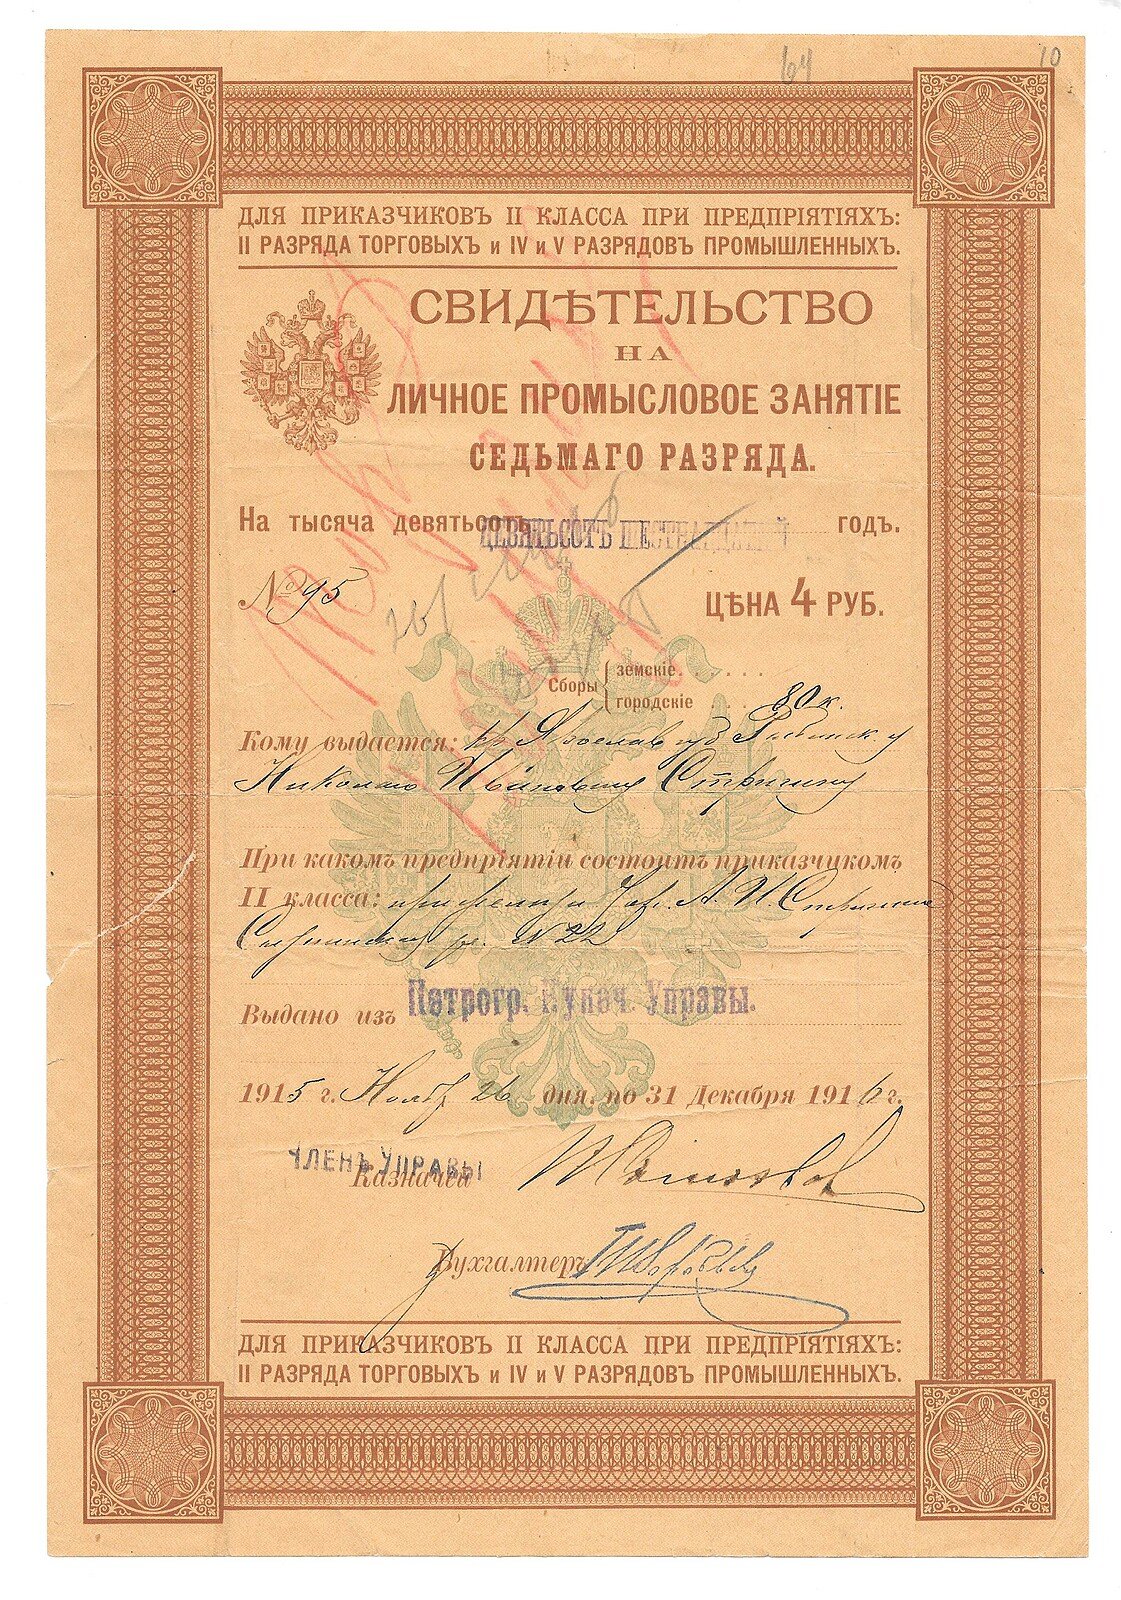 64
10
ДЛЯ ПРИКАЗЧИКОВЪ II КЛАССА ПРИ ПРЕДПРІЯТІЯХЪ:
II РАЗРЯДА ТОРГОВЫХЪ и IV и V РАЗРЯДОВЪ ПРОМЫШЛЕННЫХЪ.
СВИДѢТЕЛЬСТВО
НА
ЛИЧНОЕ ПРОМЫСЛОВОЕ ЗАНЯТІЕ
СЕДЬМАГО РАЗРЯДА.
На тысяча девятьсотъ ДЕВЯТЬСОТЪ ШЕСТНАДЦАТЫЙ годъ.
№ 95
ЦѢНА 4 РУБ.
Сборы { земскіе . . . . . .
городскіе . . . 80 к.
Кому выдается: кр Ярославс губ Рыбинск. у
Николаю Ивановичу Стричкину
При какомъ предпріятіи состоитъ приказчикомъ
II класса: при А. И. Стричкина
№ 22
Выдано изъ Петрогр. Купеч. Управы.
1915 г. Ноябр 26 дня. по 31 Декабря 1916 г.
ЧЛЕНЪ УПРАВЫ
Казначей
Бухгалтеръ
ДЛЯ ПРИКАЗЧИКОВЪ II КЛАССА ПРИ ПРЕДПРІЯТІЯХЪ:
II РАЗРЯДА ТОРГОВЫХЪ и IV и V РАЗРЯДОВЪ ПРОМЫШЛЕННЫХЪ.